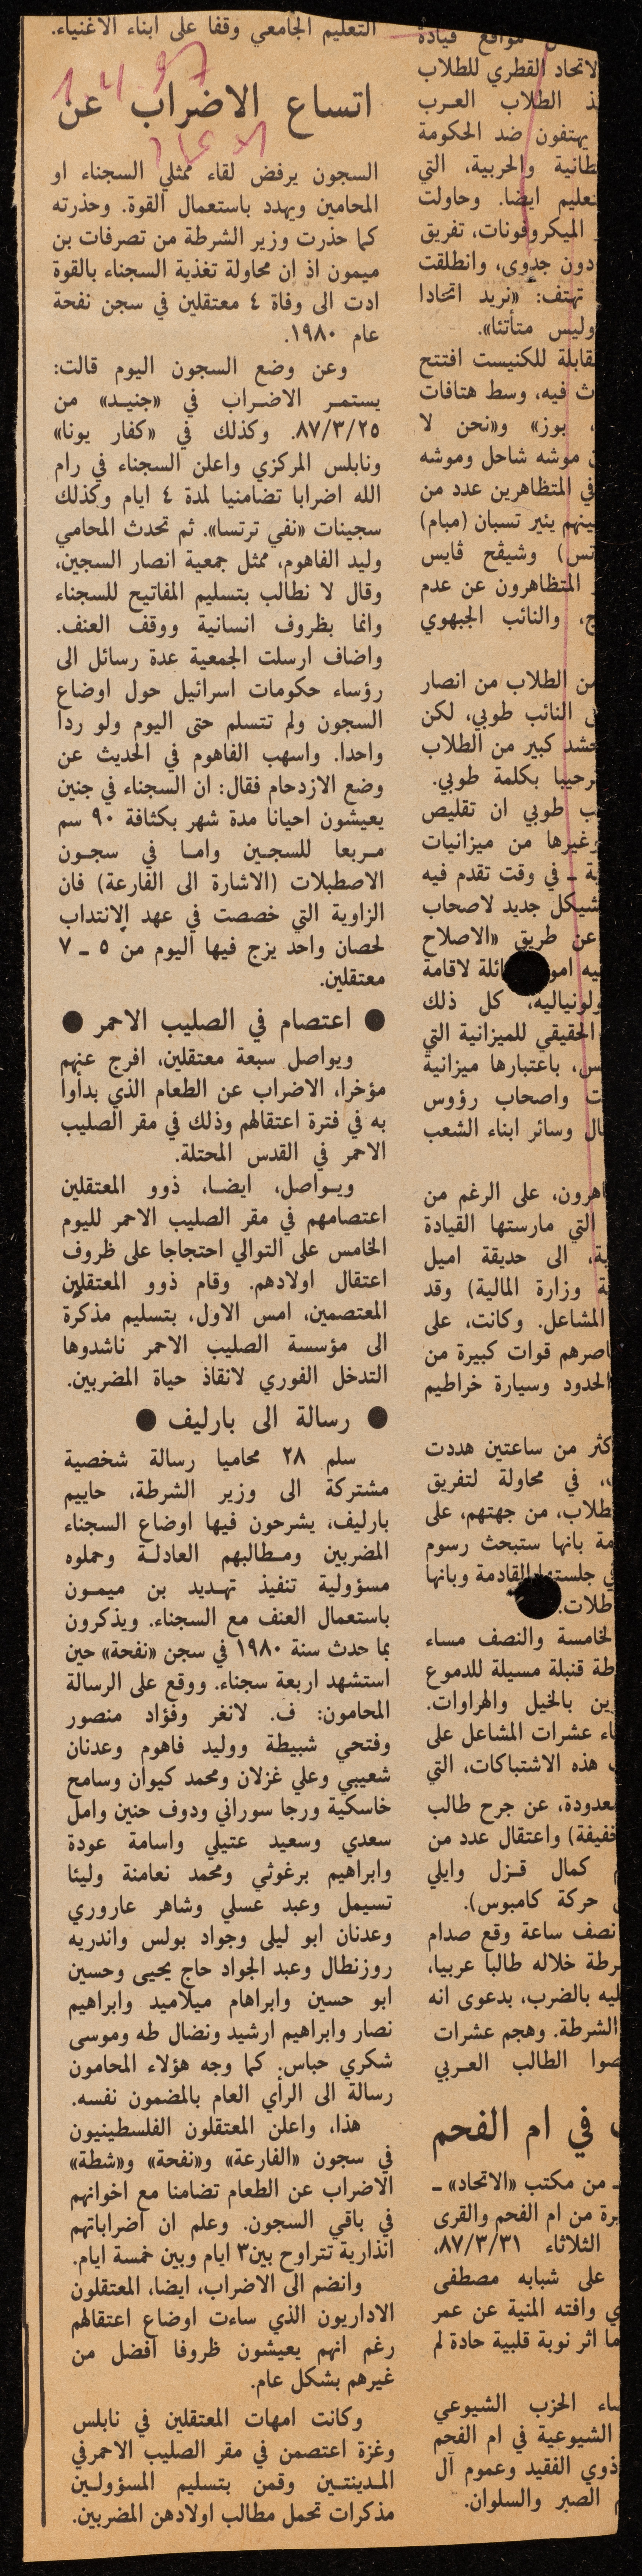 مواقع قيادة
الاتحاد القطري للطلاب
الطلاب العرب
يهتفون ضد الحكومة
والحربية، التي
ايضا. وحاولت
الميكروفونات، تفريق
دون جدوى، وانطلقت
تهتف: «نريد اتحادا
وليس متأتئا».
للكنيست افتتح
فيه، وسط هتافات
بوز» و«نحن لا
موشه شاحل وموشه
في المتظاهرين عدد من
يئير تسبان (مبام)
وشيڤح ڤايس
المتظاهرون عن عدم
والنائب الجبهوي
من الطلاب من انصار
النائب طوبي، لكن
حشد كبير من الطلاب
بكلمة طوبي.
طوبي ان تقليص
وغيرها من ميزانيات
ـ في وقت تقدم فيه
شيكل جديد لاصحاب
عن طريق «الاصلاح
لاقامة
كل ذلك
الحقيقي للميزانية التي
باعتبارها ميزانية
واصحاب رؤوس
وسائر ابناء الشعب
على الرغم من
التي مارستها القيادة
الى حديقة اميل
وزارة المالية) وقد
المشاعل. وكانت، على
قوات كبيرة من
الحدود وسيارة خراطيم
من ساعتين هددت
في محاولة لتفريق
من جهتهم، على
بانها ستبحث رسوم
القادمة وبانها
الخامسة والنصف مساء
قنبلة مسيلة للدموع
بالخيل والهراوات.
عشرات المشاعل على
هذه الاشتباكات، التي
عن جرح طالب
واعتقال عدد من
كمال قزل وايلي
حركة كامبوس).
نصف ساعة وقع صدام
خلاله طالبا عربيا،
بالضرب، بدعوى انه
الشرطة. وهجم عشرات
الطالب العربي
في ام الفحم
ـ من مكتب «الاتحاد» ـ
من ام الفحم والقرى
الثلاثاء ٨٧/٣/٣١،
على شبابه مصطفى
وافته المنية عن عمر
اثر نوبة قلبية حادة لم
الحزب الشيوعي
الشيوعية في ام الفحم
ذوي الفقيد وعموم آل
الصبر والسلوان.
التعليم الجامعي وقفا على ابناء الاغنياء.
اتساع الاضراب عن
السجون يرفض لقاء ممثلي السجناء او
المحامين ويهدد باستعمال القوة. وحذرته
كما حذرت وزير الشرطة من تصرفات بن
ميمون اذ ان محاولة تغذية السجناء بالقوة
ادت الى وفاة ٤ معتقلين في سجن نفحة
عام ١٩٨٠.
وعن وضع السجون اليوم قالت:
يستمر الاضراب في «جنيد» من
٨٧/٣/٢٥. وكذلك في «كفار يونا»
ونابلس المركزي واعلن السجناء في رام
الله اضرابا تضامنيا لمدة ٤ ايام وكذلك
سجينات «نفي ترتسا». ثم تحدث المحامي
وليد الفاهوم، ممثل جمعية انصار السجين،
وقال لا نطالب بتسليم المفاتيح للسجناء
وانما بظروف انسانية ووقف العنف.
واضاف ارسلت الجمعية عدة رسائل الى
رؤساء حكومات اسرائيل حول اوضاع
السجون ولم تتسلم حتى اليوم ولو ردا
واحدا. واسهب الفاهوم في الحديث عن
وضع الازدحام فقال: ان السجناء في جنين
يعيشون احيانا مدة شهر بكثافة ٩٠ سم
مربعا للسجين واما في سجون
الاصطبلات (الاشارة الى الفارعة) فان
الزاوية التي خصصت في عهد الانتداب
لحصان واحد يزج فيها اليوم من ٥ ـ ٧
معتقلين.
● اعتصام في الصليب الاحمر ●
ويواصل سبعة معتقلين، افرج عنهم
مؤخرا، الاضراب عن الطعام الذي بدأوا
به في فترة اعتقالهم وذلك في مقر الصليب
الاحمر في القدس المحتلة.
ويواصل، ايضا، ذوو المعتقلين
اعتصامهم في مقر الصليب الاحمر لليوم
الخامس على التوالي احتجاجا على ظروف
اعتقال اولادهم. وقام ذوو المعتقلين
المعتصمين، امس الاول، بتسليم مذكرة
الى مؤسسة الصليب الاحمر ناشدوها
التدخل الفوري لانقاذ حياة المضربين.
● رسالة الى بارليف ●
سلم ٢٨ محاميا رسالة شخصية
مشتركة الى وزير الشرطة، حاييم
بارليف، يشرحون فيها اوضاع السجناء
المضربين ومطالبهم العادلة وحملوه
مسؤولية تنفيذ تهديد بن ميمون
باستعمال العنف مع السجناء. ويذكرون
بما حدث سنة ١٩٨٠ في سجن «نفحة» حين
استشهد اربعة سجناء. ووقع على الرسالة
المحامون: ف. لانغر وفؤاد منصور
وفتحي شبيطة ووليد فاهوم وعدنان
شعيبي وعلي غزلان ومحمد كيوان وسامح
خاسكية ورجا سوراني ودوف حنين وامل
سعدي وسعيد عتيلي واسامة عودة
وابراهيم برغوثي ومحمد نعامنة وليئا
تسيمل وعبد عسلي وشاهر عاروري
وعدنان ابو ليلى وجواد بولس واندريه
روزنطال وعبد الجواد حاج يحيى وحسين
ابو حسين وابراهام ميلاميد وابراهيم
نصار وابراهيم ارشيد ونضال طه وموسى
شكري حباس. كما وجه هؤلاء المحامون
رسالة الى الرأي العام بالمضمون نفسه.
هذا، واعلن المعتقلون الفلسطينيون
في سجون «الفارعة» و«نفحة» و«شطة»
الاضراب عن الطعام تضامنا مع اخوانهم
في باقي السجون. وعلم ان اضراباتهم
انذارية تتراوح بين٣ ايام وبين خمسة ايام.
وانضم الى الاضراب، ايضا، المعتقلون
الاداريون الذي ساءت اوضاع اعتقالهم
رغم انهم يعيشون ظروفا افضل من
غيرهم بشكل عام.
وكانت امهات المعتقلين في نابلس
وغزة اعتصمن في مقر الصليب الاحمرفي
المدينتين وقمن بتسليم المسؤولين
مذكرات تحمل مطالب اولادهن المضربين.